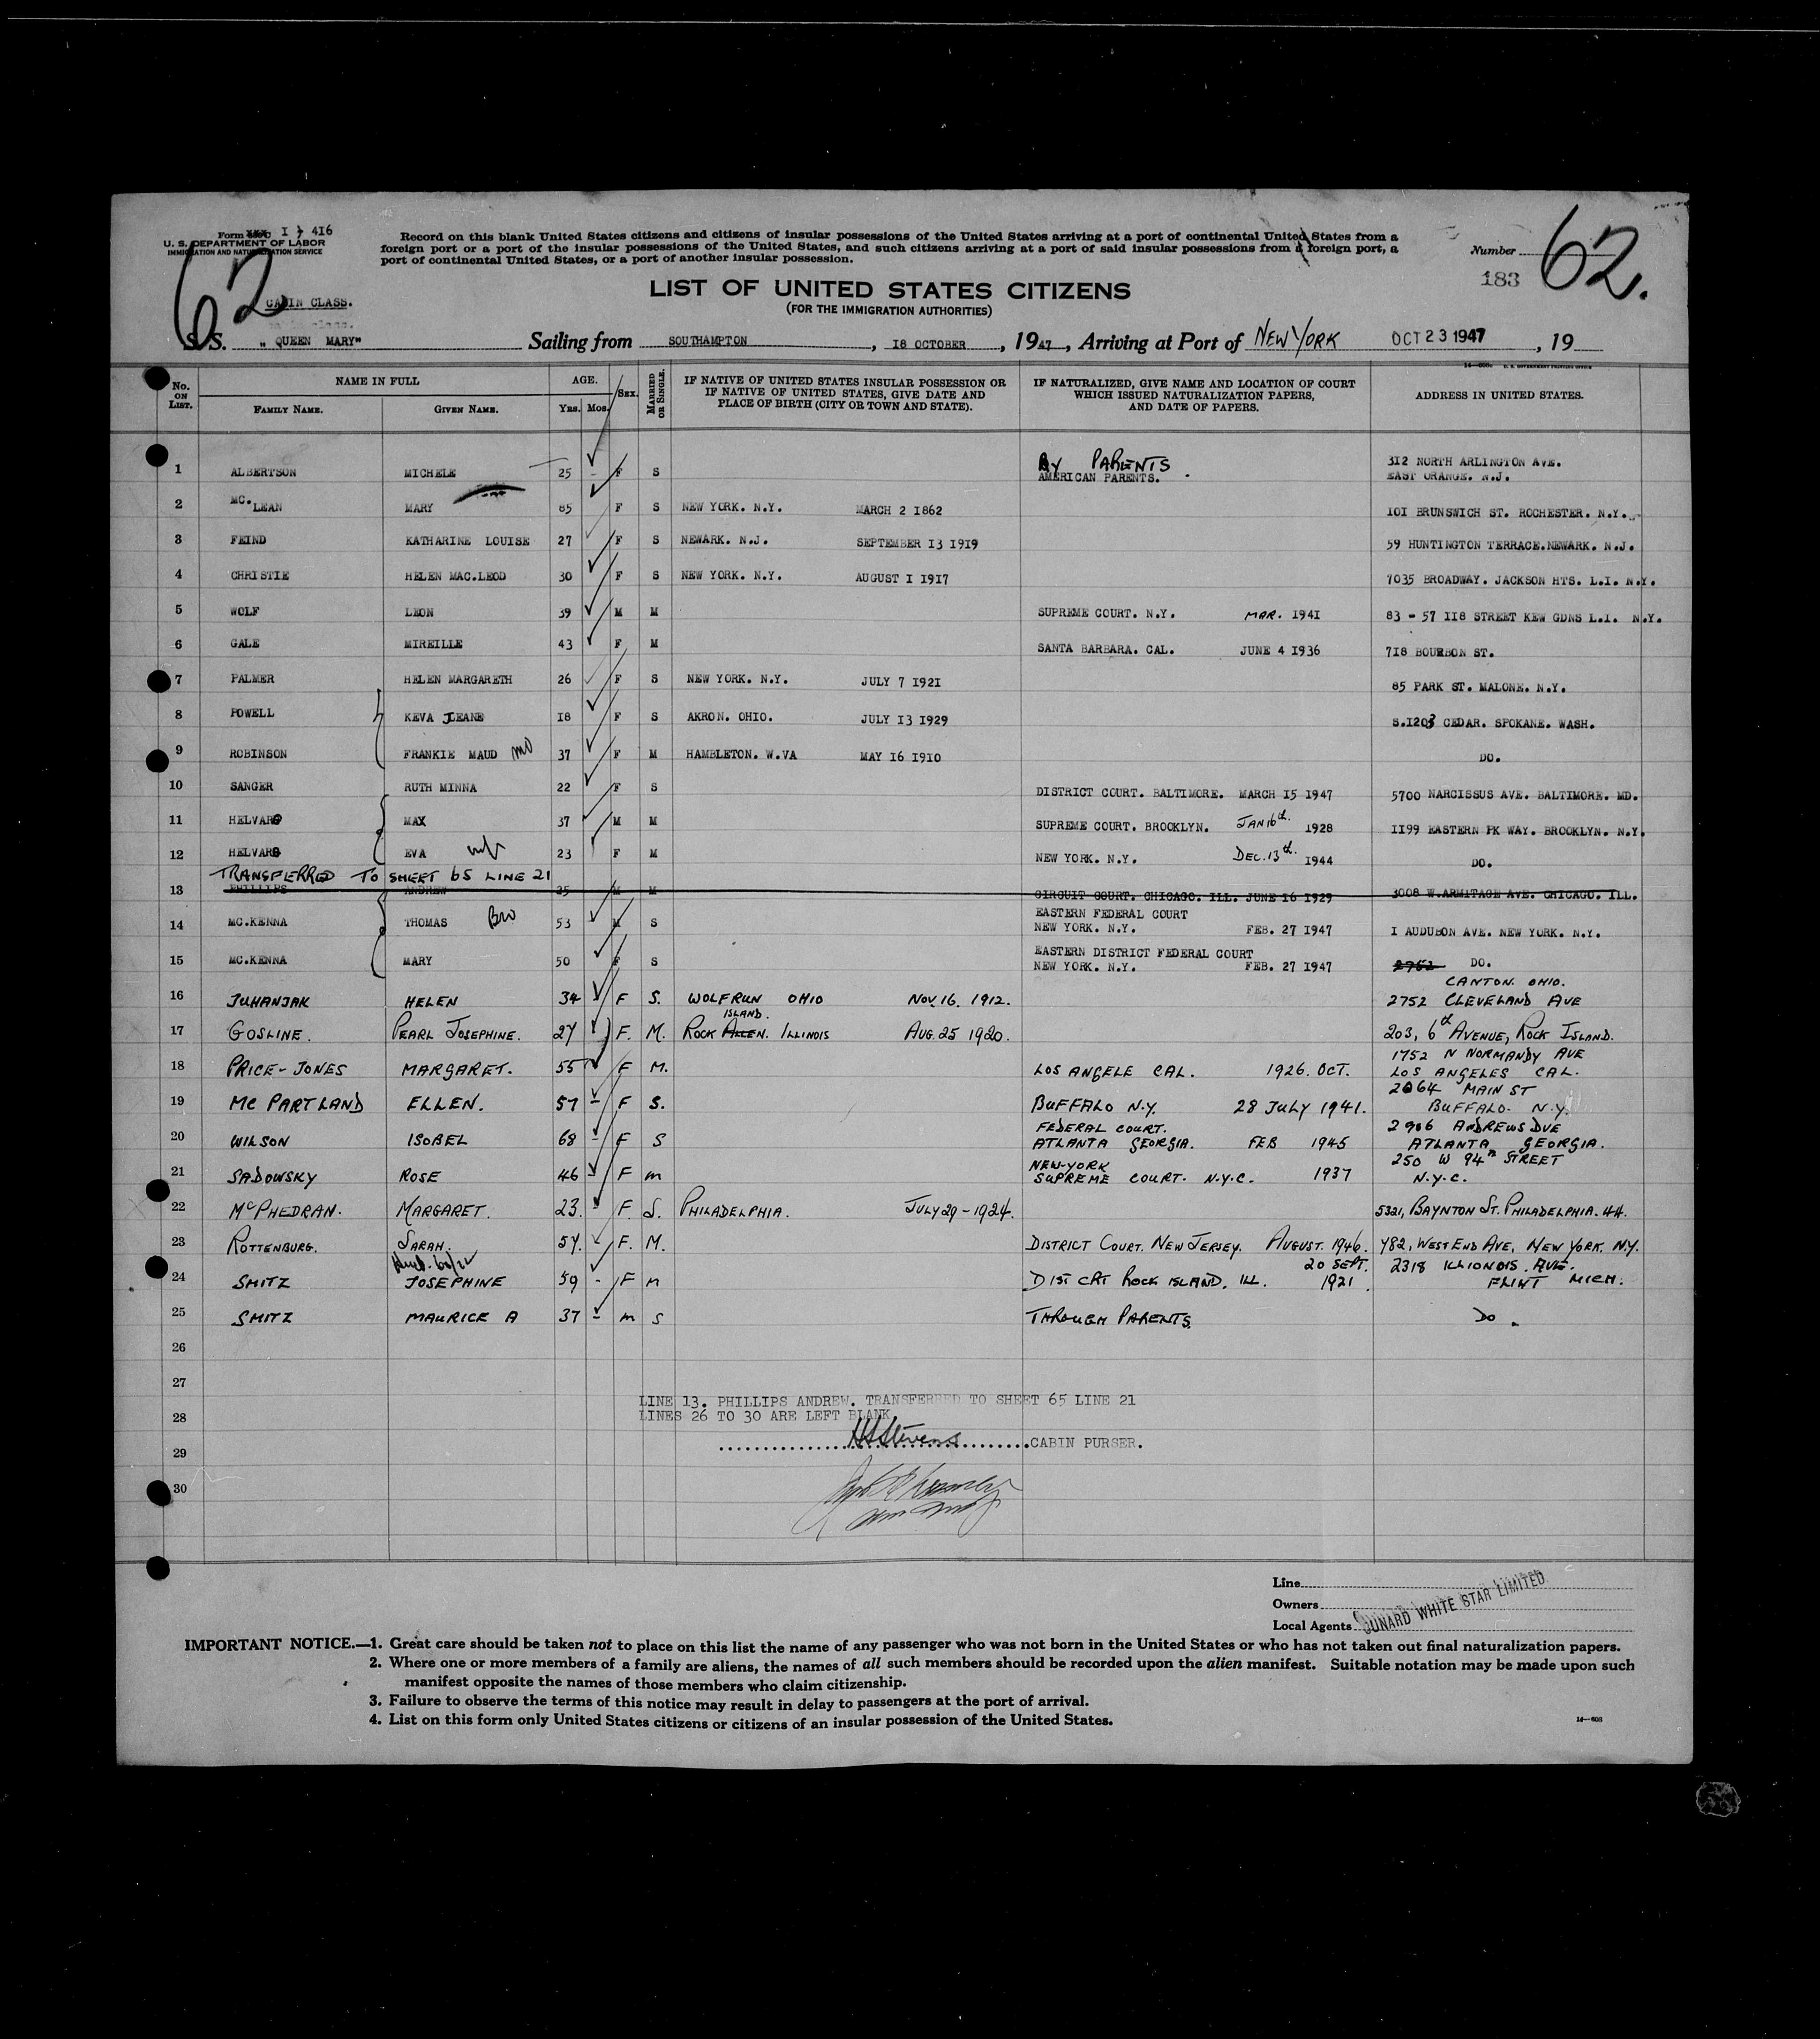 Form I 416
U. S. DEPARTMENT OF LABOR
IMMIGRATION AND NATURALIZATION SERVICE
62
CABIN CLASS.
Record on this blank United States citizens and citizens of insular possessions of the United States arriving at a port of continental United States from a
foreign port or a port of the insular possessions of the United States, and such citizens arriving at a port of said insular possessions from a foreign port, a
port of continental United States, or a port of another insular possession.
Number 62.
183
LIST OF UNITED STATES CITIZENS
(FOR THE IMMIGRATION AUTHORITIES)
S. S. "QUEEN MARY" Sailing from SOUTHAMPTON, 18 OCTOBER, 1947, Arriving at Port of NEW YORK OCT 23 1947, 19
No. ON LIST. NAME IN FULL FAMILY NAME. GIVEN NAME. AGE. Yrs. Mos. SEX. MARRIED OR SINGLE. IF NATIVE OF UNITED STATES INSULAR POSSESSION OR IF NATIVE OF UNITED STATES, GIVE DATE AND PLACE OF BIRTH (CITY OR TOWN AND STATE). IF NATURALIZED, GIVE NAME AND LOCATION OF COURT WHICH ISSUED NATURALIZATION PAPERS, AND DATE OF PAPERS. ADDRESS IN UNITED STATES.
1 ALBERTSON MICHELE 25 - F S BY PARENTS AMERICAN PARENTS. 312 NORTH ARLINGTON AVE. EAST ORANGE. N.J.
2 MC. LEAN MARY 85 F S NEW YORK. N.Y. MARCH 2 1862 101 BRUNSWICH ST. ROCHESTER. N.Y.
3 FEIND KATHARINE LOUISE 27 F S NEWARK. N.J. SEPTEMBER 13 1919 59 HUNTINGTON TERRACE.NEWARK. N.J.
4 CHRISTIE HELEN MAC.LEOD 30 F S NEW YORK. N.Y. AUGUST 1 1917 7035 BROADWAY. JACKSON HTS. L.I. N.Y.
5 WOLF LEON 39 M M SUPREME COURT. N.Y. MAR. 1941 83 - 57 118 STREET KEW GDNS L.I. N.Y.
6 GALE MIREILLE 43 F M SANTA BARBARA. CAL. JUNE 4 1936 718 BOURBON ST.
7 PALMER HELEN MARGARETH 26 F S NEW YORK. N.Y. JULY 7 1921 85 PARK ST. MALONE. N.Y.
8 POWELL KEVA JEANE 18 F S AKRON. OHIO. JULY 13 1929 S.1203 CEDAR. SPOKANE. WASH.
9 ROBINSON FRANKIE MAUD mo 37 F M HAMBLETON. W.VA MAY 16 1910 DO.
10 SANGER RUTH MINNA 22 F S DISTRICT COURT. BALTIMORE. MARCH 15 1947 5700 NARCISSUS AVE. BALTIMORE. MD.
11 HELVARG MAX 37 M M SUPREME COURT. BROOKLYN. JAN 16th. 1928 1199 EASTERN PK WAY. BROOKLYN. N.Y.
12 HELVARG EVA wife 23 F M NEW YORK. N.Y. DEC. 13th. 1944 DO.
TRANSFERRED TO SHEET 65 LINE 21
13 PHILLIPS ANDREW 25 M M CIRCUIT COURT. CHICAGO. ILL. JUNE 16 1929 3008 W.ARMITAGE AVE. CHICAGO. ILL.
14 MC.KENNA THOMAS Bro 53 M S EASTERN FEDERAL COURT NEW YORK. N.Y. FEB. 27 1947 1 AUDUBON AVE. NEW YORK. N.Y.
15 MC.KENNA MARY 50 F S EASTERN DISTRICT FEDERAL COURT NEW YORK. N.Y. FEB. 27 1947 2752 DO.
16 JUHANJAK HELEN 34 F S. WOLFRUN OHIO NOV. 16. 1912. CANTON. OHIO. 2752 CLEVELAND AVE
17 GOSLINE. PEARL JOSEPHINE. 27 F. M. ROCK ALLEN. ISLAND. ILLINOIS AUG. 25 1920. 203, 6th AVENUE, ROCK ISLAND.
18 PRICE-JONES MARGARET. 55 F M. LOS ANGELE CAL. 1926. OCT. 1752 N NORMANDY AVE LOS ANGELES CAL.
19 MC PARTLAND ELLEN. 57 - F S. BUFFALO N.Y. 28 JULY 1941. 2064 MAIN ST BUFFALO. N.Y.
20 WILSON ISOBEL 68 - F S FEDERAL COURT. ATLANTA GEORGIA. FEB 1945 2906 ANDREWS DVE ATLANTA, GEORGIA.
21 SADOWSKY ROSE 46 - F M NEW-YORK SUPREME COURT. N.Y.C. 1937 250 W 94th STREET N.Y.C.
22 McPHEDRAN. MARGARET. 23. - F. S. PHILADELPHIA. JULY 29-1924. 5321, BAYNTON ST. PHILADELPHIA. 44.
23 ROTTENBURG. SARAH. 57. F. M. DISTRICT COURT. NEW JERSEY. AUGUST. 1946. 782, WEST END AVE, NEW YORK. N.Y.
24 SMITZ JOSEPHINE 59 - F M DIST CRT ROCK ISLAND. ILL. 20 SEPT. 1921. 2318 ILLIONOIS. AVE. FLINT MICH.
25 SMITZ MAURICE A 37 - M S THROUGH PARENTS. DO.
26
27
LINE 13. PHILLIPS ANDREW. TRANSFERRED TO SHEET 65 LINE 21
28 LINES 26 TO 30 ARE LEFT BLANK.
29 HStevens CABIN PURSER.
30
Line
Owners
Local Agents CUNARD WHITE STAR LIMITED
IMPORTANT NOTICE.—1. Great care should be taken not to place on this list the name of any passenger who was not born in the United States or who has not taken out final naturalization papers.
2. Where one or more members of a family are aliens, the names of all such members should be recorded upon the alien manifest. Suitable notation may be made upon such
manifest opposite the names of those members who claim citizenship.
3. Failure to observe the terms of this notice may result in delay to passengers at the port of arrival.
4. List on this form only United States citizens or citizens of an insular possession of the United States.
14—608